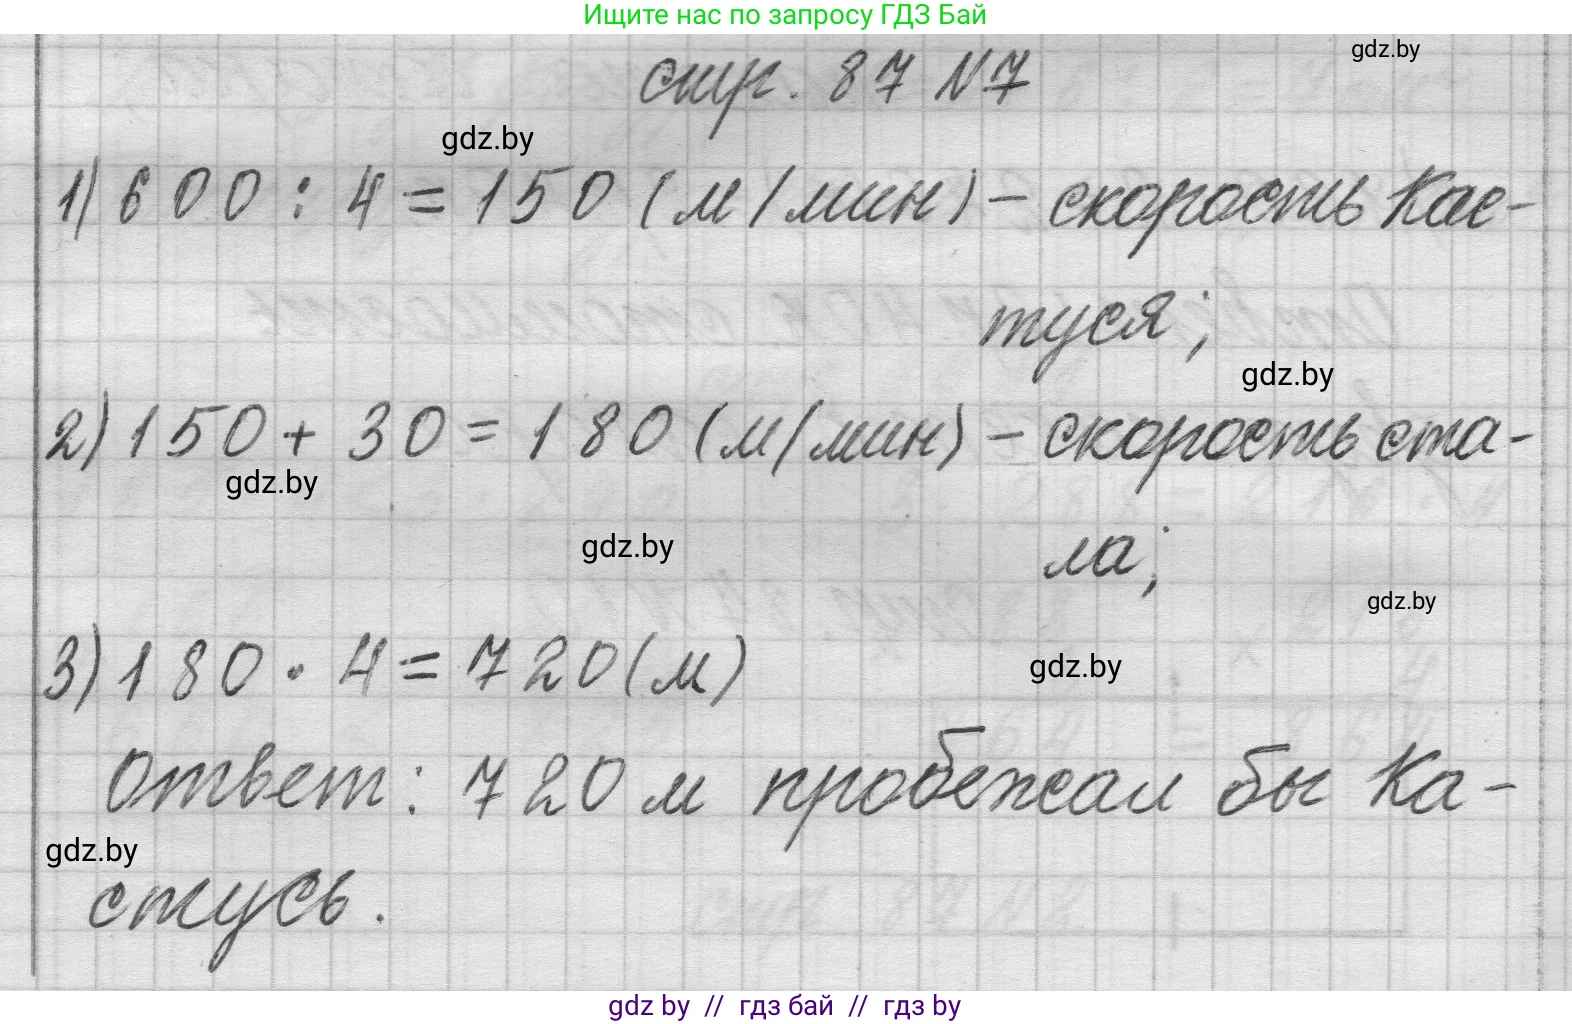 Ищите нас по запросу ГДЗ Бай
gdz.by
стр. 87 №7
gdz.by
1) 600 : 4 = 150 (м/мин) - скорость Кас-
туся;
gdz.by
2) 150 + 30 = 180 (м/мин) - скорость ста-
gdz.by
gdz.by
ла;
gdz.by
3) 180 · 4 = 720 (м)
gdz.by
Ответ: 720 м пробежал бы Ка-
gdz.by
стусь.
gdz by // гдз бай // гдз by